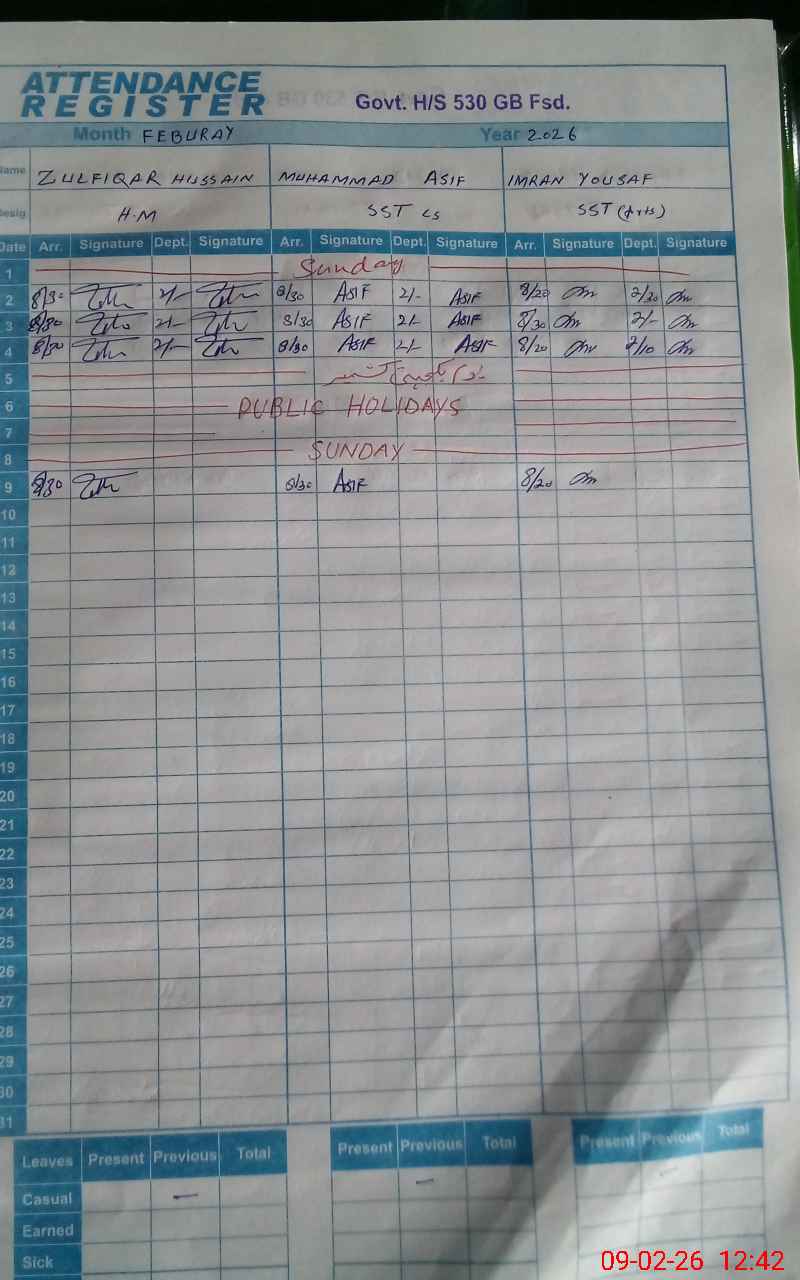 ATTENDANCE
REGISTER
Govt. H/S 530 GB Fsd.
Month FEBURAY Year 2026
Name ZULFIQAR HUSSAIN MUHAMMAD ASIF IMRAN YOUSAF
Desig H.M SST SST (Arts)
Date Arr. Signature Dept. Signature Arr. Signature Dept. Signature Arr. Signature Dept. Signature
1 Sunday
2 8/30 2/- 8/30 ASIF 2/- ASIF 8/20 2/20
3 8/30 2/- 8/30 ASIF 2/- ASIF 8/30 2/-
4 8/30 2/- 8/30 ASIF 2/- ASIF 8/20 2/10
5
6 PUBLIC HOLIDAYS
7
8 SUNDAY
9 8/30 8/30 ASIF 8/20
10
11
12
13
14
15
16
17
18
19
20
21
22
23
24
25
26
27
28
29
30
31
Leaves Present Previous Total Present Previous Total Present Previous Total
Casual - - -
Earned
Sick
09-02-26 12:42